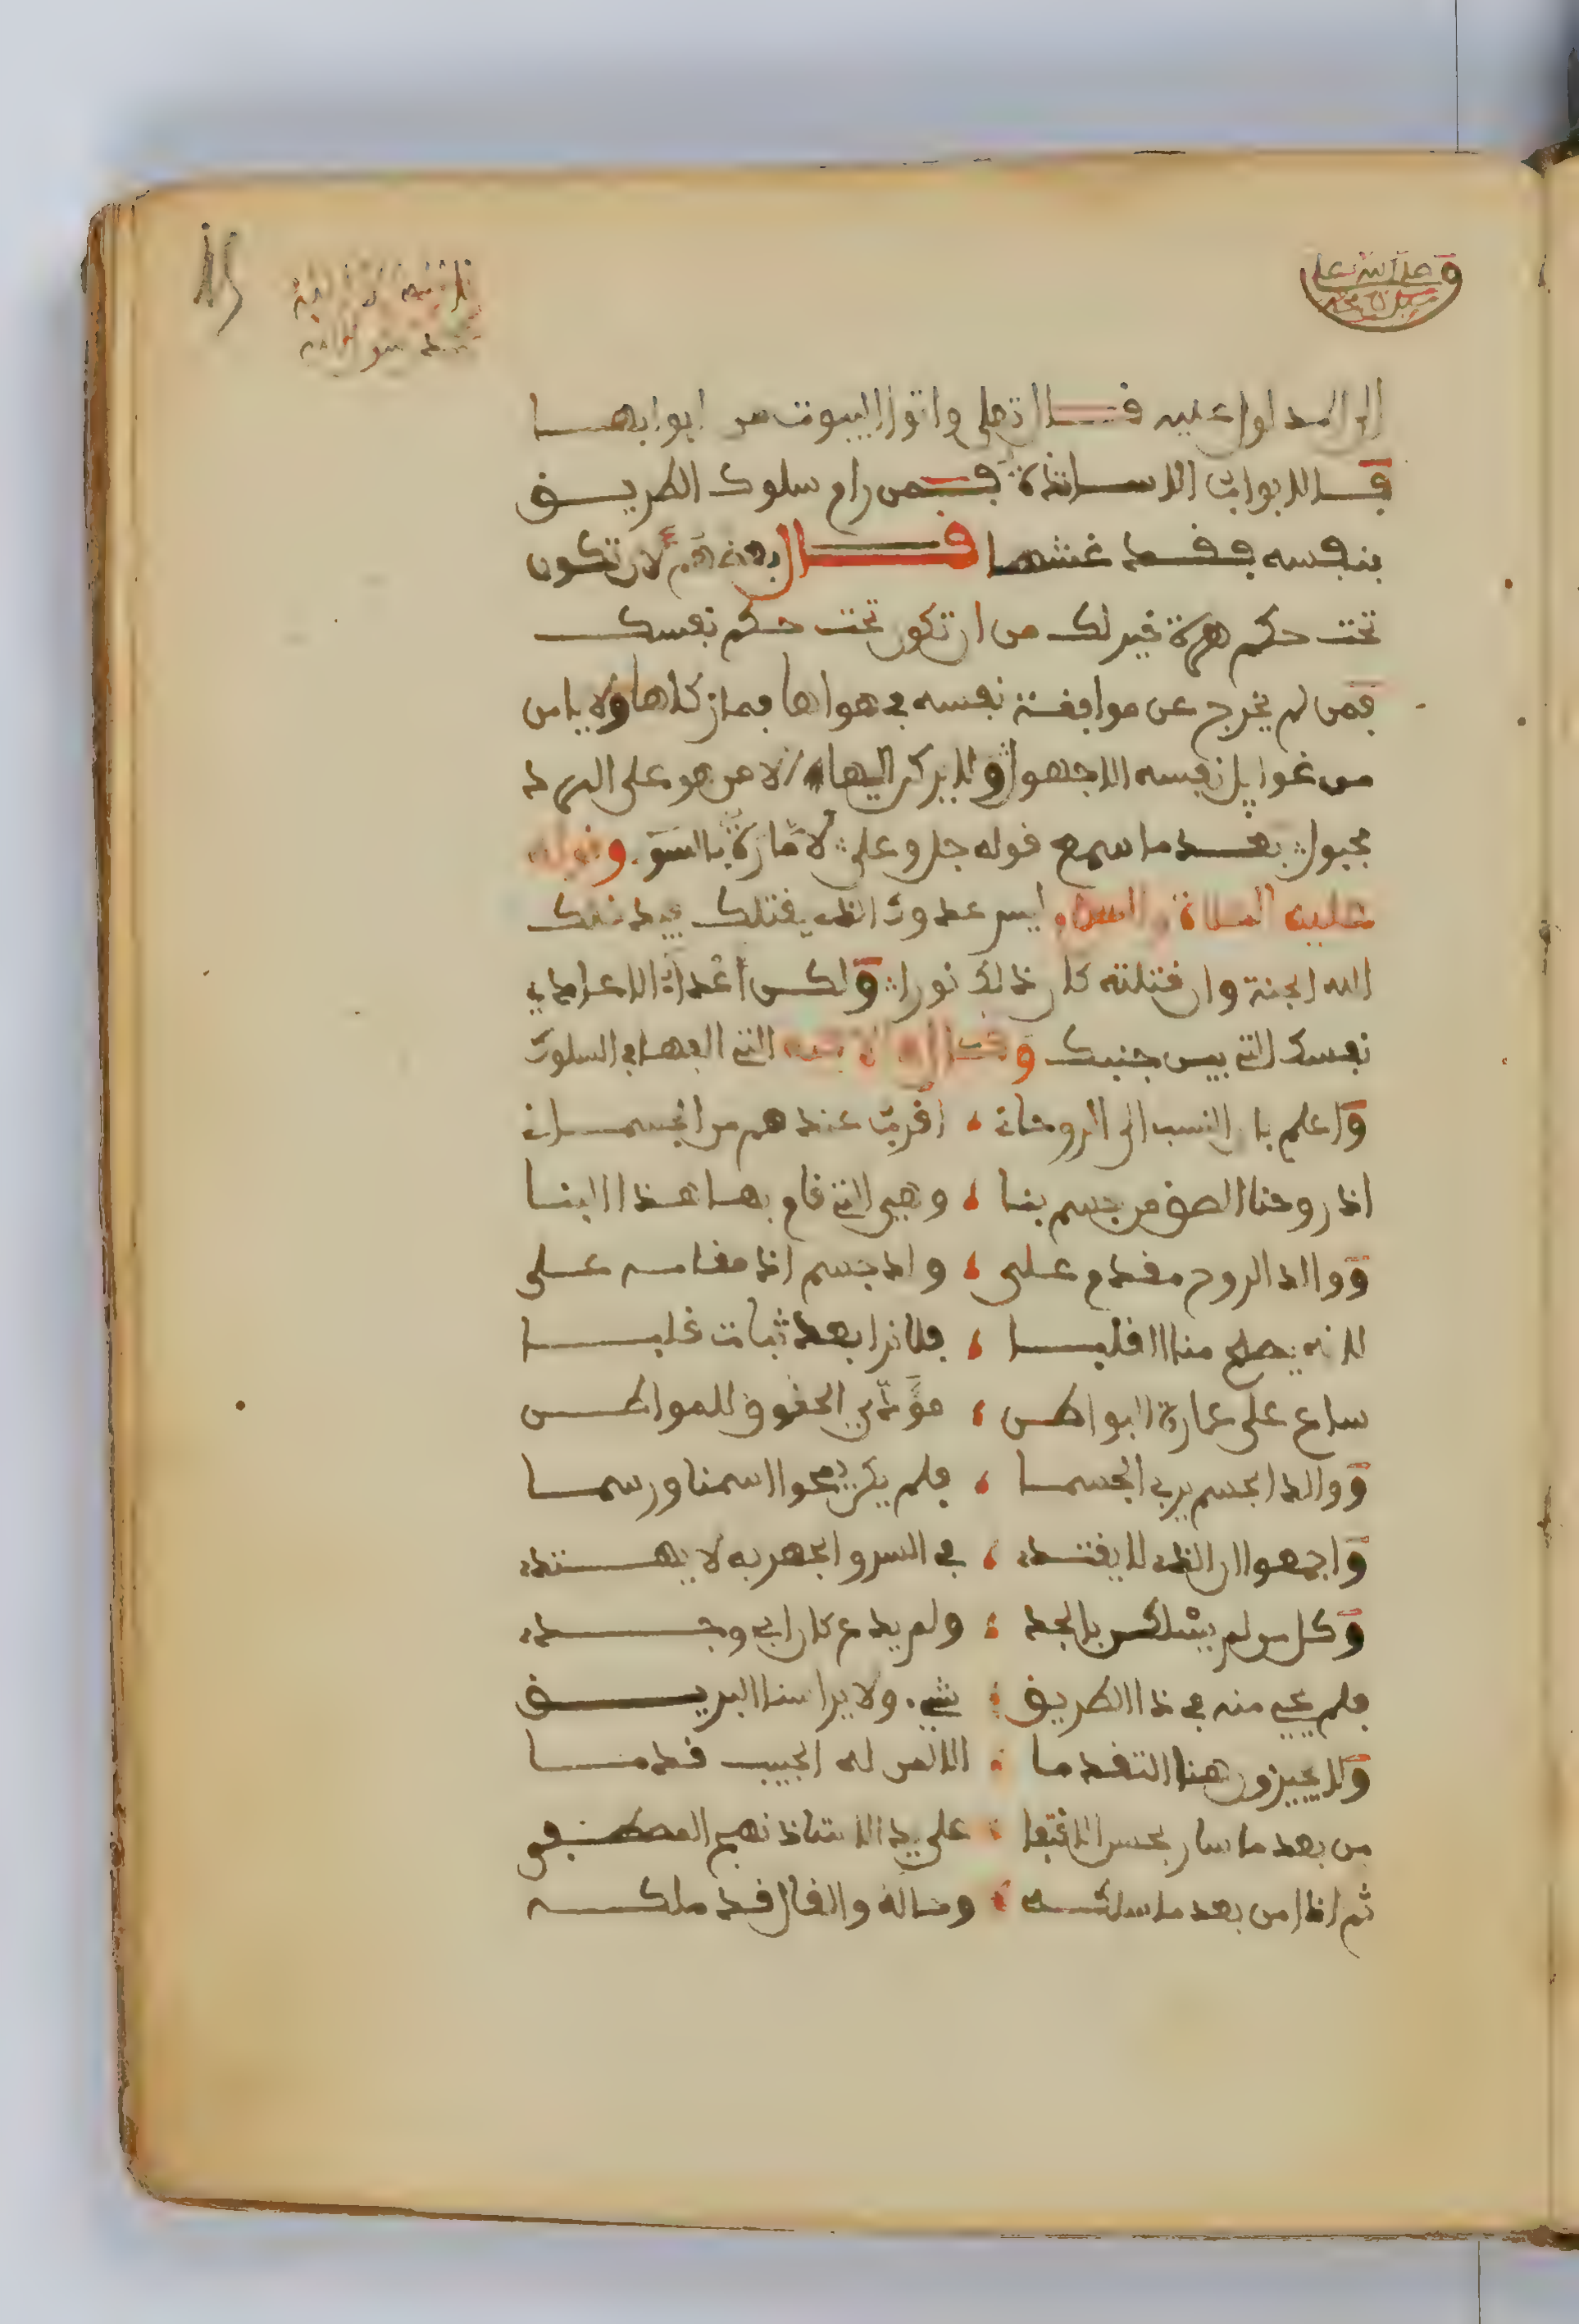 وصلى الله على
الى المداول عليه فال تعلى واتوا البيوت من ابوابها
فالابواب الاساتذة فمن رام سلوك الطريق
بنفسه فقد غشها فال بعضهم لان تكون
تحت حكم هرة خير لك من ان تكون تحت حكم نفسك
فمن لم يخرج عن موافقة نفسه في هواها فما زكاها ولا يامن
من غوايل نفسه الا جهول ولا يركن اليها الا من هو على
مجبول بعد ما سمع قوله جل وعلى لامارة بالسوء وقوله
عليه الصلاة والسلام ليس عدوك الذي يقتلك فيدخلك
الله الجنة وان قتلته كان ذلك نورا ولكن اعداء الاعادي
نفسك التي بين جنبيك التي الفها في السلوك
واعلم بان النسب الى الروحاني اقرب عندهم من الجسماني
اذ روحنا الصق من جسم بنا وهي التي قام بها هذا البنا
ووالد الروح مقدم على والد جسم اذ مقامه على
لانه يصلح منا القلبا فلا نرا بعد ثبات غلبا
ساع على عمارة البواطن مؤدي الحقوق للمواطن
ووالد الجسم يربي الجسما فلم يكن يمحوا اسمنا ورسما
واجمعوا ان الذي لا يقتدي في السر والجهر به لا يهتدي
وكل من لم يسلكن بالجد ولم يدع كان ابي وجدي
فلم يجي منه في ذا الطريق شيء ولا يرا سنا البريق
ولا يجيزون هنا التقدما الا لمن له الحبيب قدما
من بعد ما سار بحسن الاقتفا على يد الاستاذ نهج المصطفى
ثم اذا من بعد ما سلكه وحاله والقال قد ملكه